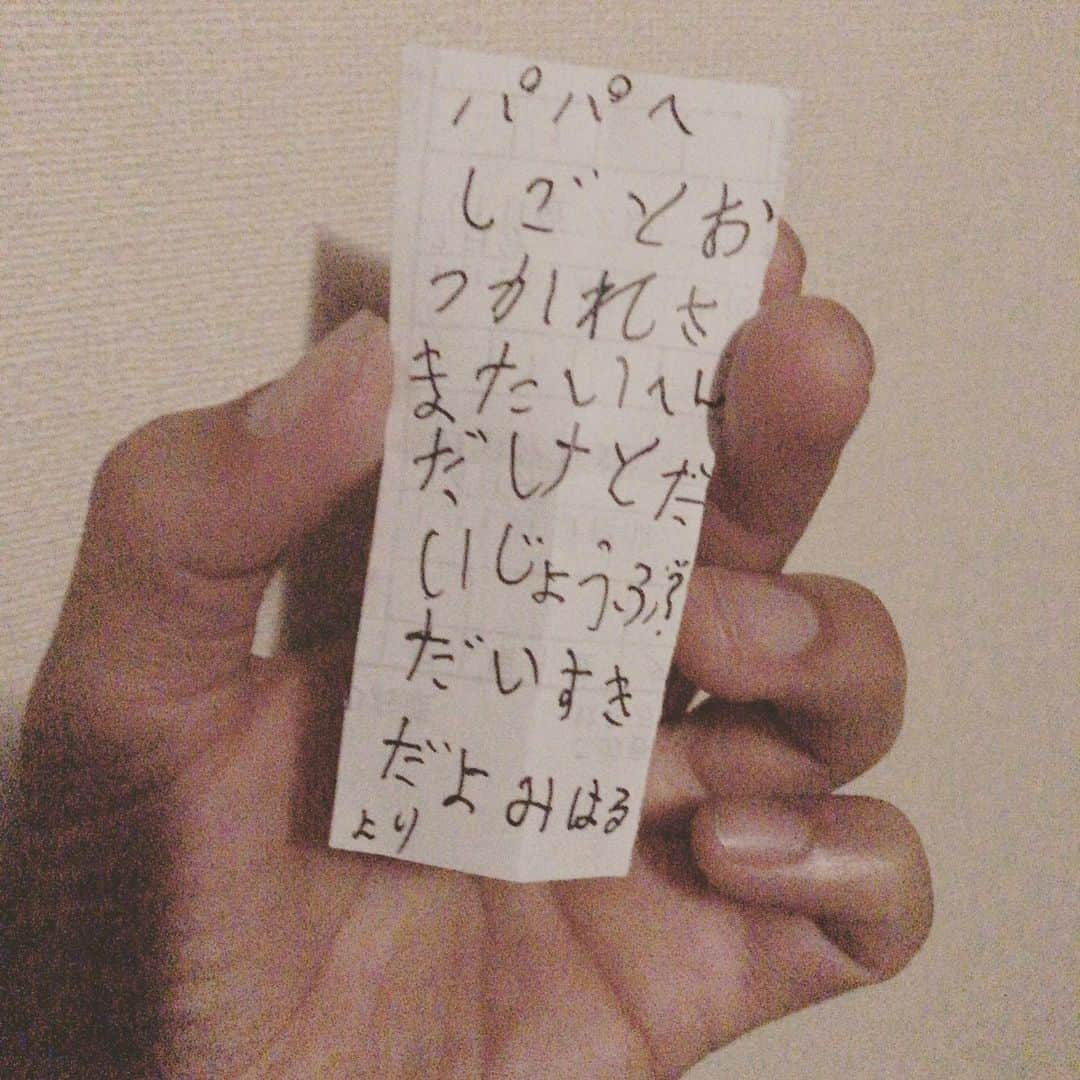 パパへ
しごとお
つかれさ
またいへん
だしけとだ
いじょうぶ?
だいすき
だよみはる
より